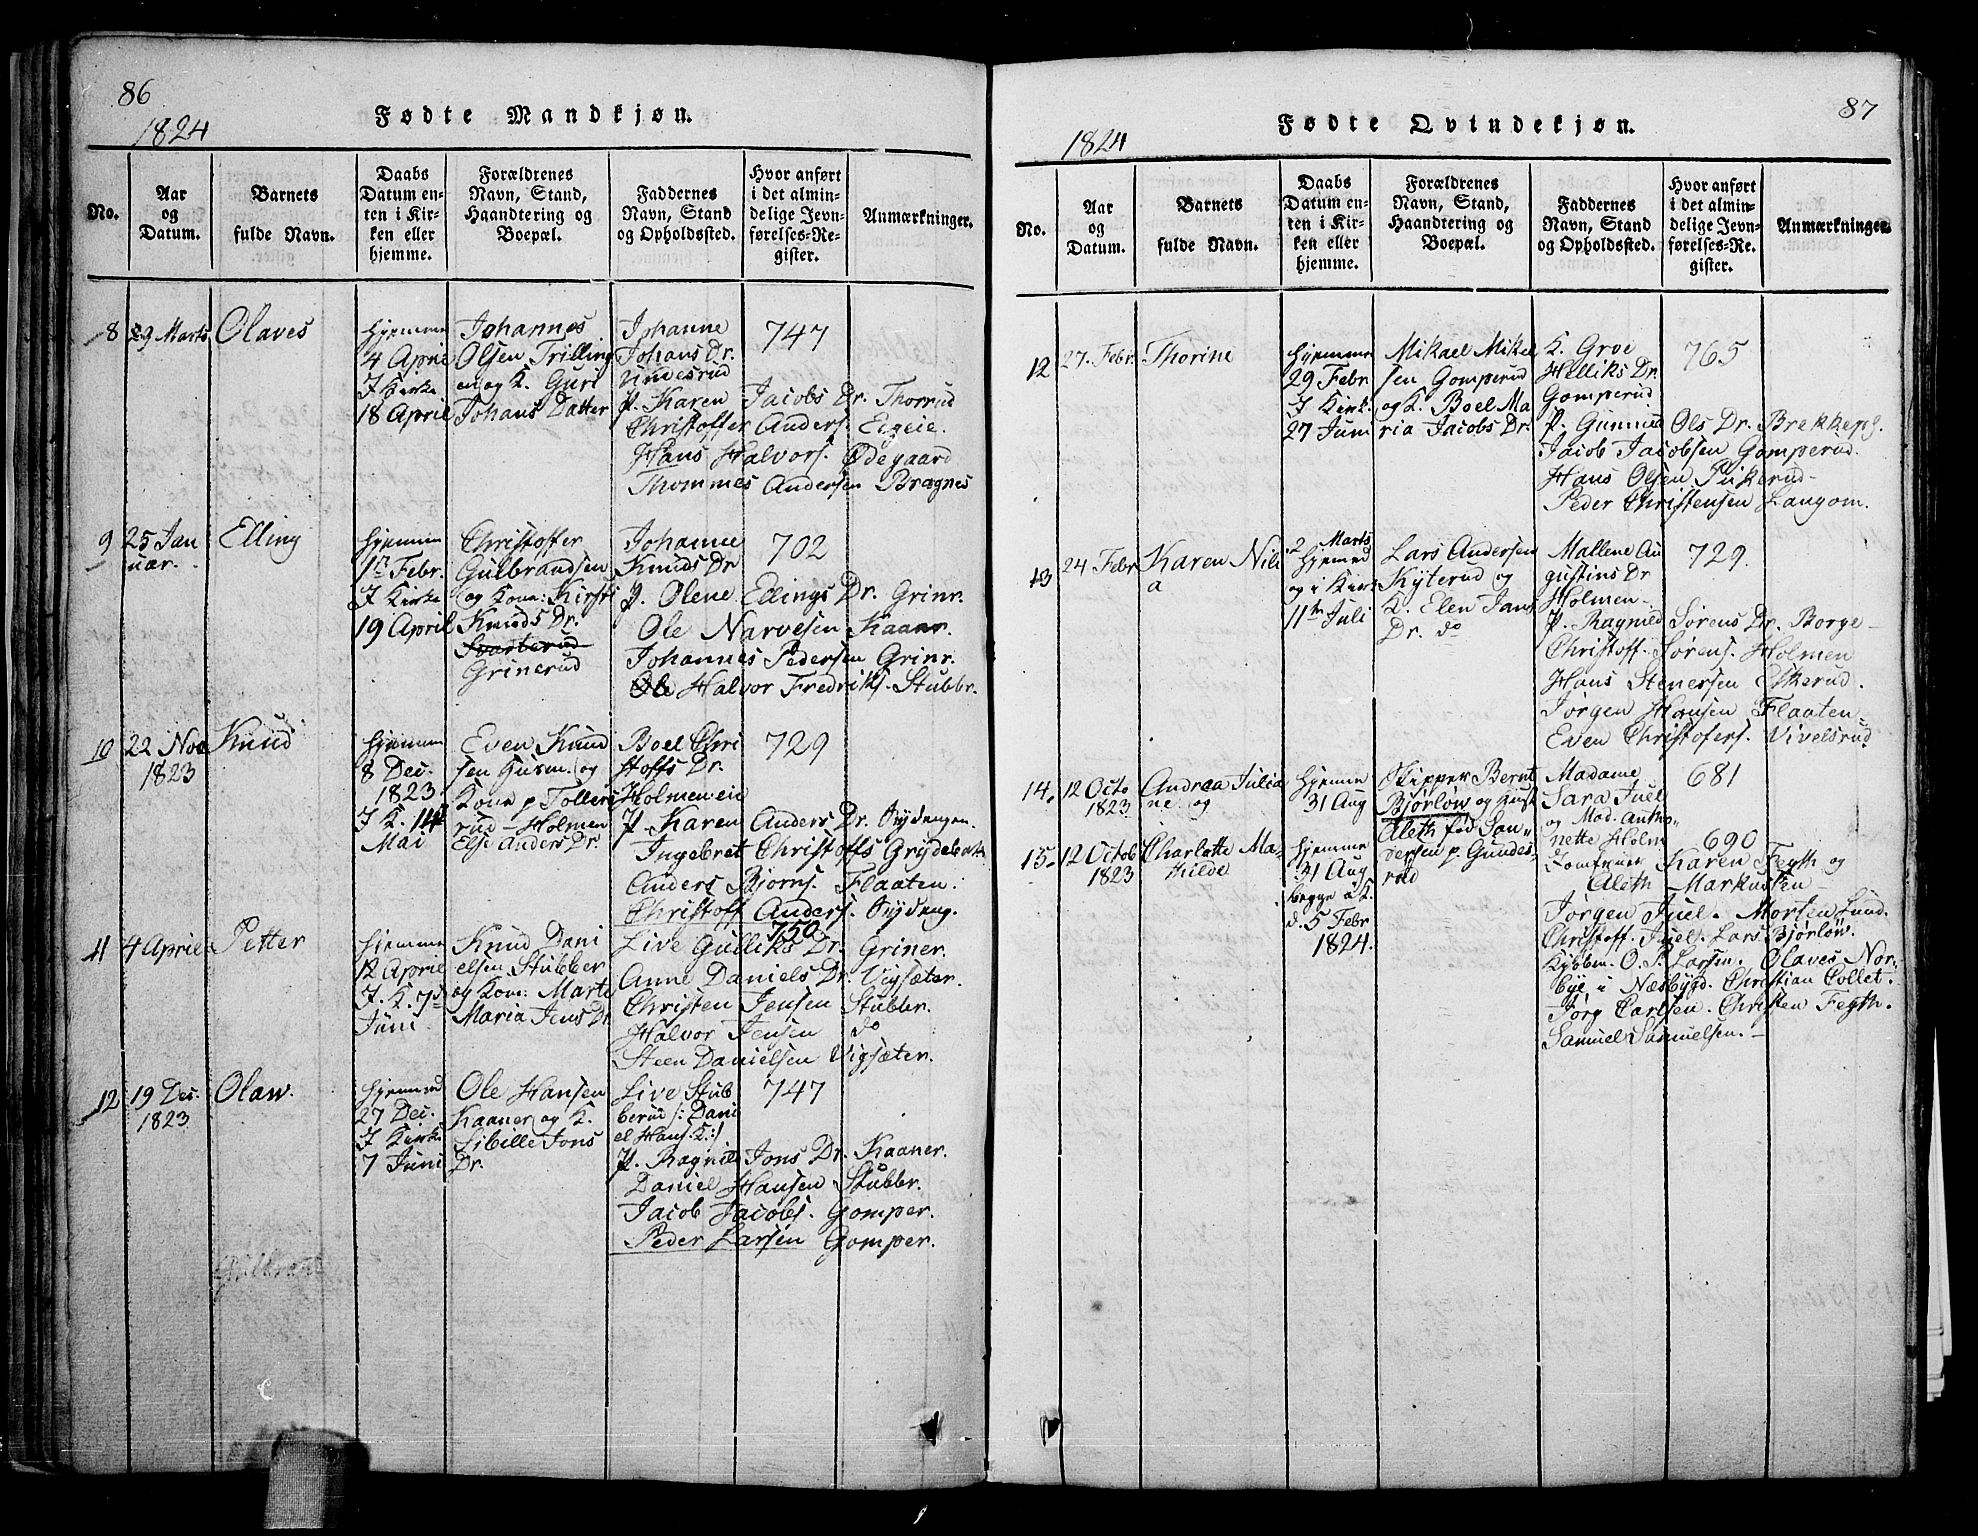 86
1824
Fødte Mandkjøn.
No.
Aar
og
Datum.
Barnets
fulde Navn.
Daabs
Datum en-
ten i Kir-
ken eller
hjemme.
Forældrenes
Navn, Stand,
Haandtering og
Boepæl.
Faddernes
Navn, Stand
og Opholdssted.
Hvor anført
i det almin-
delige Jevn-
førelses-Re-
gister.
Anmærkninger.
8
29 Marts
Olaves
Hjemme
4 April
I Kirke
18 April
Johannes
Olsen Trilling
en og K. Guri
Johans Datter
Johanne
Johans Dr.
Undesrud
P. Karen Jacobs Dr. Thorrud
Christoffer Anders. Eigeie.
Hans Halvors. Ødegaard
Thommes Andersen Bragnes
747
9
25 Jan
uar.
Elling
Hjemme
1ste Febr.
I Kirke
19 April
Christoffer
Gulbrandsen
og Kone: Kirsti
Knuds Dr.
Svarterud
Grinerud
Johanne
Knuds Dr
P. Olene Ellings Dr. Grinr.
Ole Narvesen Kaanr.
Johannes Pedersen Grinr.
Ole Halvor Fredriks. Stubbr.
702
10
22 Nov
1823
Knud
Hjemme
8 Dec.
1823
I K. 14de
Mai
Even Knud
sen Gusm. og
Kone p Tolleri
rud - Holmen
Else Anders Dr.
Boel Chri
stoffs Dr.
Holmen eie
P. Karen Anders Dr. Frydengen.
Ingebret Christoffs Grydebak
Anders Bjorns. Flaaten.
Christoff Anders. Frydeng.
729
11
4 April
Petter
Hjemme
12 April
I. K. 7de
Juni
Knud Dani
elsen Stubber
og Kone: Marte
Maria Jens Dr
750
Live Gulliks Dr. Griner.
Anne Daniels Dr. Vigsæter.
Christen Jensen Stubbr.
Halvor Jensen do
Steen Danielsen Vigsæter.
12
19 Dec.
1823
Olaw.
Hjemme
27 Dec.
I Kirke
7 Juni
Ole Hansen
Kaaner og K.
Sibille Jons
Dr.
Live Stub
berud /: Dani
el Hans. K. :/
P. Ragnild Jons Dr. Kaaner.
Daniel Hansen Stubbr.
Jacob Jacobs. Gomper.
Peder Larsen Gomper.
747
87
1824
Fødte Qvindekjøn.
No.
Aar
og
Datum.
Barnets
fulde Navn.
Daabs
Datum en-
ten i Kir-
ken eller
hjemme.
Forældrenes
Navn, Stand,
Haandtering og
Boepæl.
Faddernes
Navn, Stand
og Opholdssted.
Hvor anført
i det almin-
delige Jevn-
førelses-Re-
gister.
Anmærkninger.
12
27 Febr.
Thorine
Hjemme
29 Febr
I Kirk.
27 Juni
Mikael Mikel
sen Gomperud
og K. Boel Ma
ria Jacobs Dr.
K. Groe
Helliks Dr.
Gomperud
P. Gunnild Ols Dr. Brekkepg.
Jacob Jacobsen Gomperud.
Hans Olsen Pukerud-
Peder Christensen Langom.
765
13
24 Febr
Karen Nili
a
2 Marts
Hjemed
og i Kirk
11te Juli
Lars Andersen
Kyterud og
K. Elen Jans
Dr. do
Mallene Au
gustins Dr
Holmen-
P. Ragnild Sørens Dr. Borge-
Christoff. Sørens. Holmen
Hans Stenersen Eskerud.
Jørgen Hansen Flaaten-
Even Christofers. Vivelsrud
729.
14.
12 Octo
1823
Andrea Julia
ne og
Hjemme
31 Aug
Skipper Bernt
Bjørløw og Kust
Aleth fød San-
dersen p Gundes-
rud
Madame
Sara Juel
og Mad. Antho-
nette Holm
Jomfruer Karen Fegth og
Aleth Markussen-
Jørgen Juel. Morten Lund.
Christoff. Juel. Lars Bjørløw.
Kjøbm. O. S. Larsen. Olaves Nor-
bye i Næsbygd. Christian Collet.
Jørg Carlsen. Christen Fegth.
Samuel Samuelsen.-
681
15.
12 Octob
1823
Charlotte Ma-
thilde
Hjemme
31 Aug
begge i K.
d. 5 Febr
1824.
690